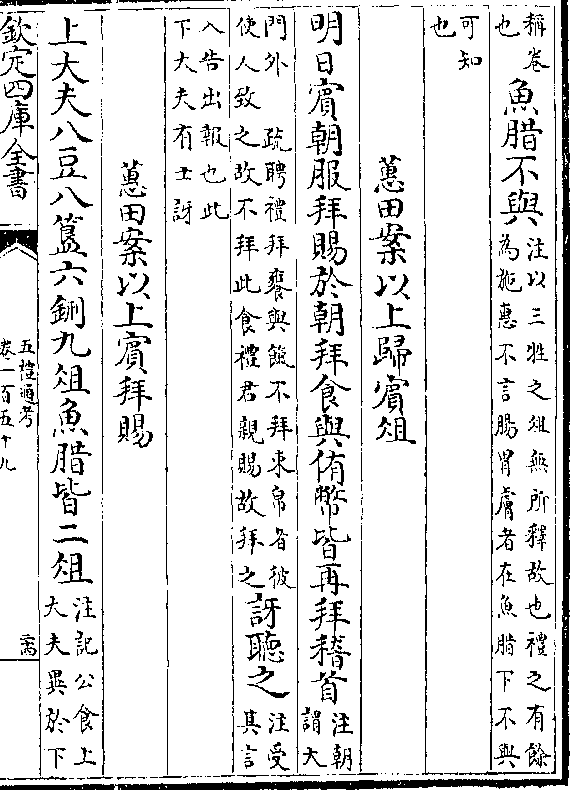 稱卷
也
魚腊不與
注以三牲之俎無所釋故也禮之有餘
為施惠不言腸胃膚者在魚腊下不與
可知
也
蕙田案以上歸賓俎
明日賓朝服拜賜於朝拜食與侑幣皆再拜稽首
注朝
謂大
門外 疏聘禮拜饔與餼不拜束帛者彼
使人致之故不拜此食禮君親賜故拜之
訝聽之
注受
其言
入告出報也此
下大夫有士訝
蕙田案以上賓拜賜
上大夫八豆八簋六鉶九俎魚腊皆二俎
注記公食上
大夫異於下
欽定四庫全書
五禮通考
卷一百五十九